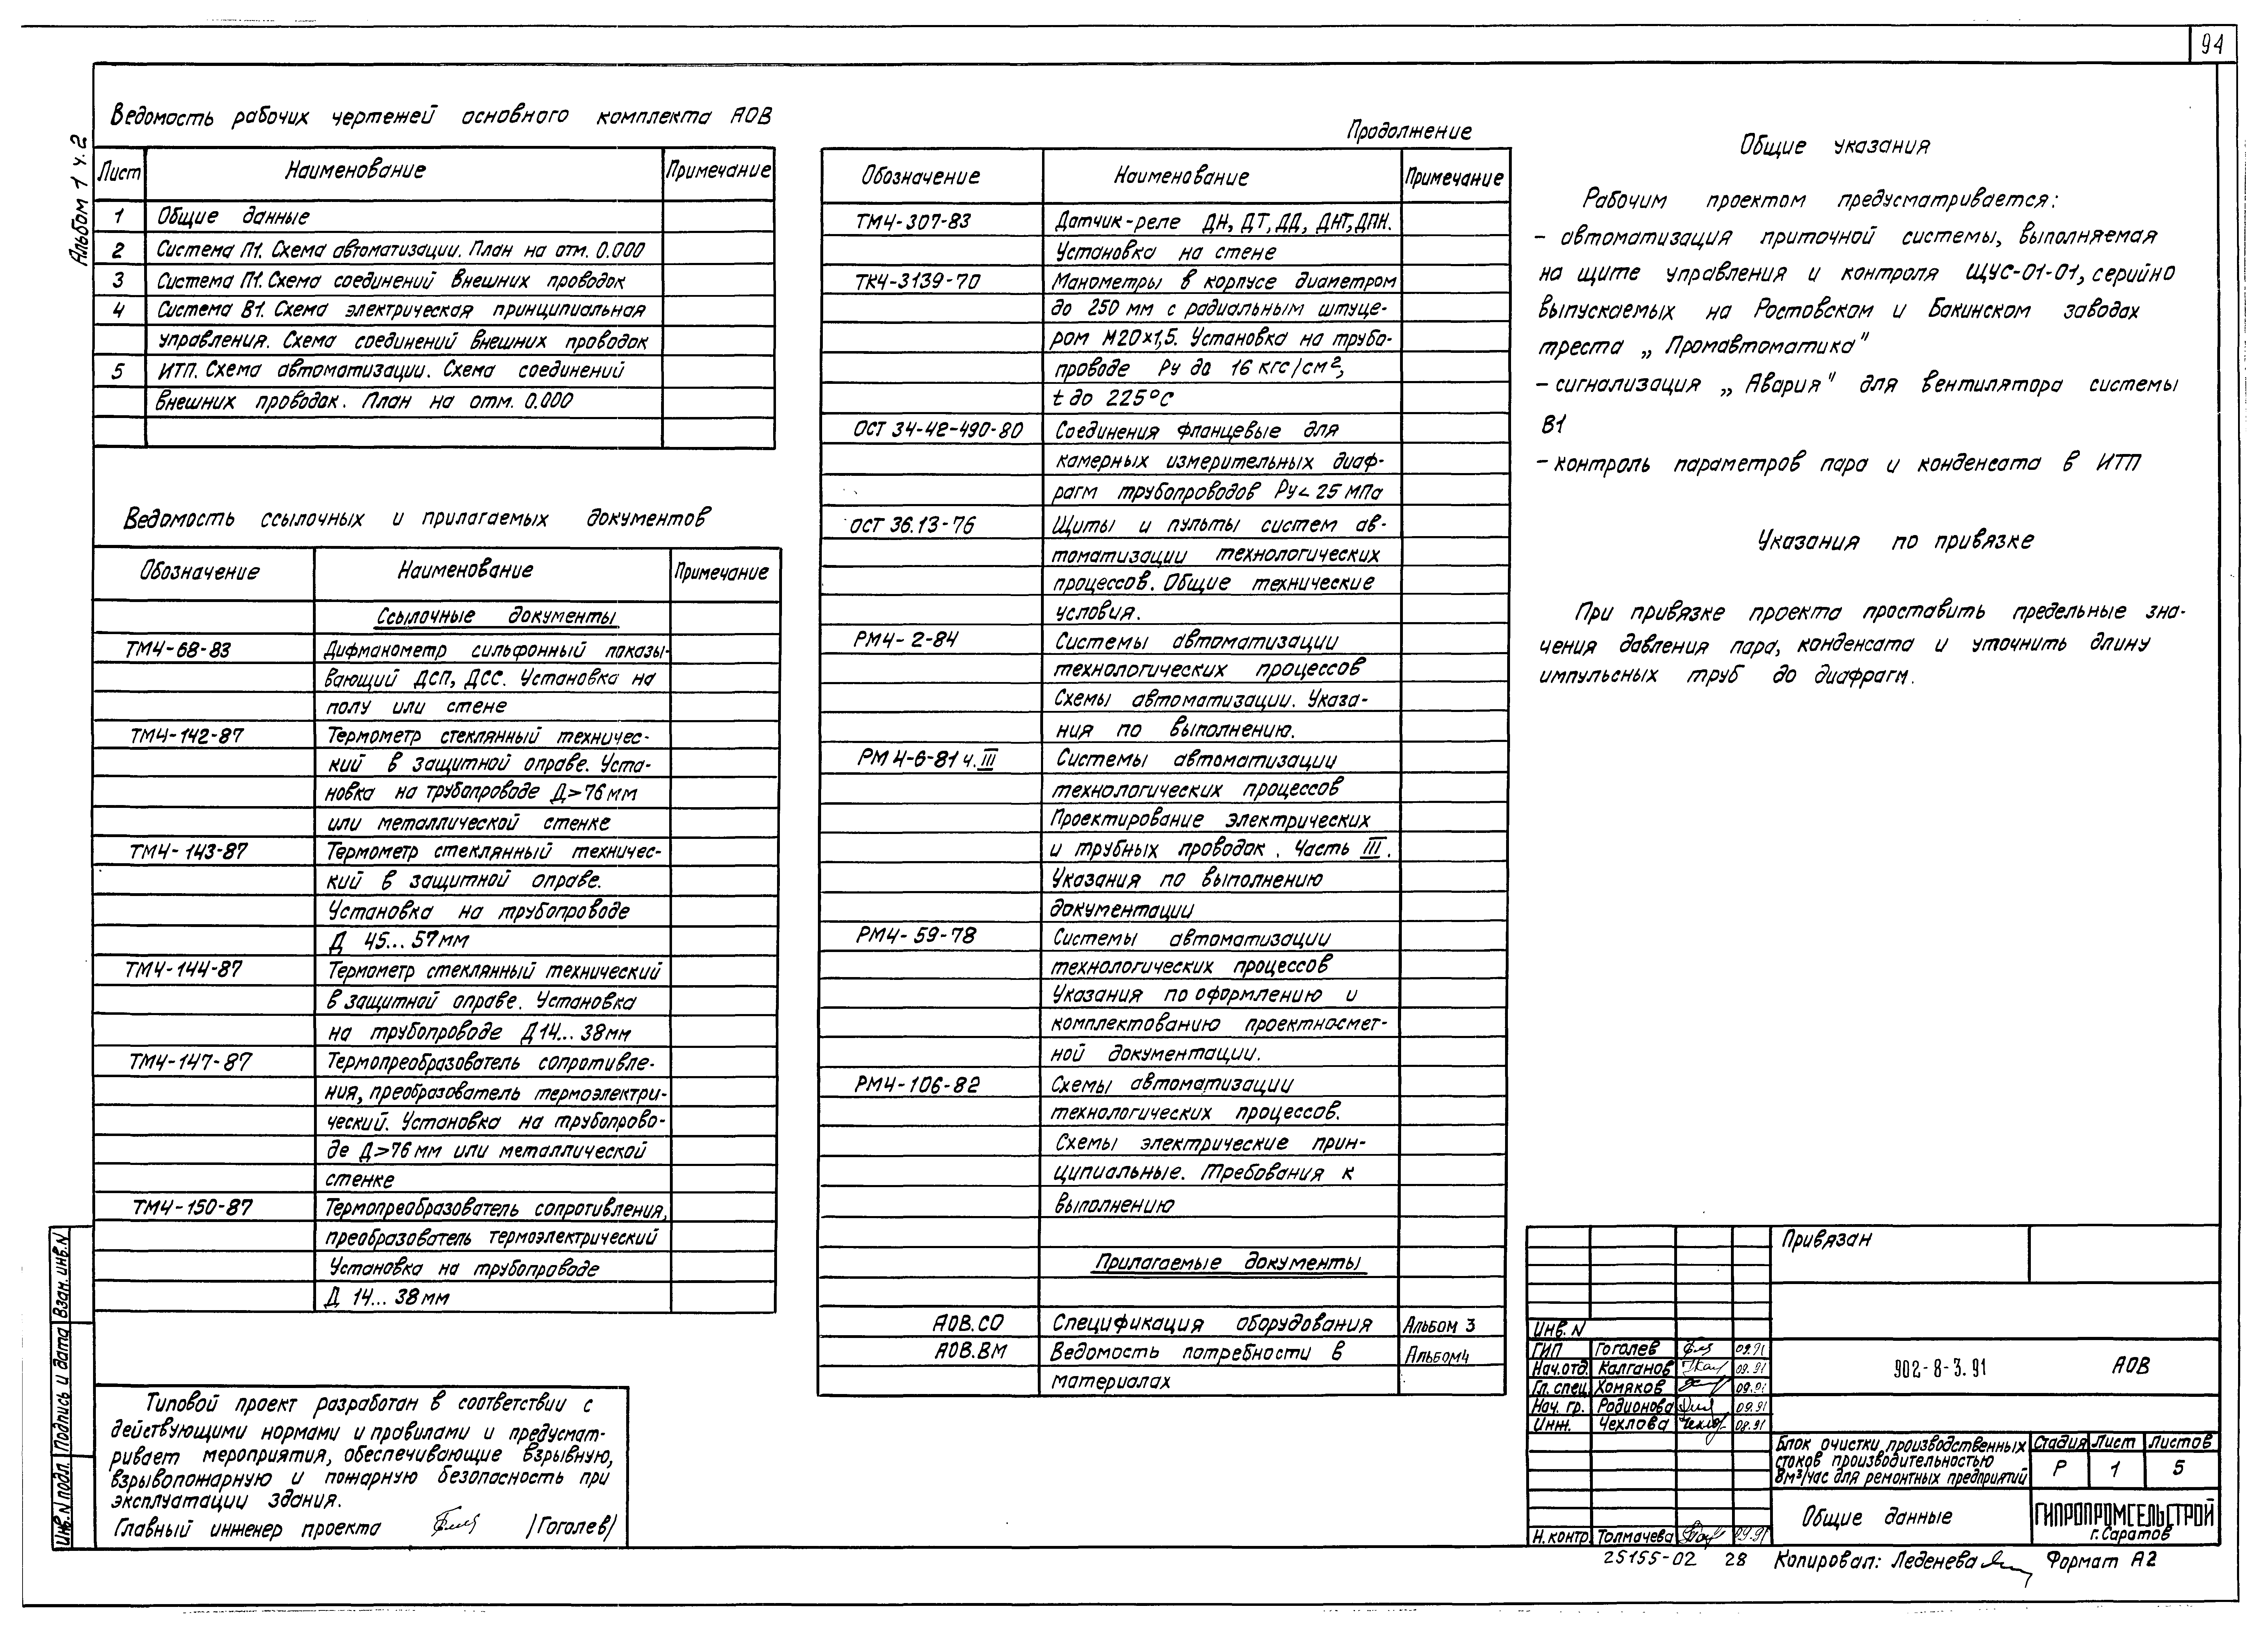 94
Альбом 1 ч.2
Ведомость рабочих чертежей основного комплекта АОВ
Лист Наименование Примечание
1 Общие данные
2 Система П1. Схема автоматизации. План на отм. 0.000
3 Система П1. Схема соединений внешних проводок
4 Система В1. Схема электрическая принципиальная
управления. Схема соединений внешних проводок
5 ИТП. Схема автоматизации. Схема соединений
внешних проводок. План на отм. 0.000
Ведомость ссылочных и прилагаемых документов
Обозначение Наименование Примечание
Ссылочные документы
ТМ4-68-83 Дифманометр сильфонный показы-
вающий ДСП, ДСС. Установка на
полу или стене
ТМ4-142-87 Термометр стеклянный техничес-
кий в защитной оправе. Уста-
новка на трубопроводе Д>76мм
или металлической стенке
ТМ4-143-87 Термометр стеклянный техничес-
кий в защитной оправе.
Установка на трубопроводе
Д 45...57мм
ТМ4-144-87 Термометр стеклянный технический
в защитной оправе. Установка
на трубопроводе Д14...38мм
ТМ4-147-87 Термопреобразователь сопротивле-
ния, преобразователь термоэлектри-
ческий. Установка на трубопрово-
де Д>76мм или металлической
стенке
ТМ4-150-87 Термопреобразователь сопротивления,
преобразователь термоэлектрический
Установка на трубопроводе
Д 14...38мм
Типовой проект разработан в соответствии с
действующими нормами и правилами и предусмат-
ривает мероприятия, обеспечивающие взрывную,
взрывопожарную и пожарную безопасность при
эксплуатации здания.
Главный инженер проекта /Гоголев/
Продолжение
Обозначение Наименование Примечание
ТМ4-307-83 Датчик-реле ДН, ДТ, ДД, ДНТ, ДПН.
Установка на стене
ТК4-3139-70 Манометры в корпусе диаметром
до 250 мм с радиальным штуце-
ром М20х1,5. Установка на трубо-
проводе Ру до 16 кгс/см²,
t до 225°С
ОСТ 34-42-490-80 Соединения фланцевые для
камерных измерительных диаф-
рагм трубопроводов Ру< 25 МПа
ОСТ 36.13-76 Щиты и пульты систем ав-
томатизации технологических
процессов. Общие технические
условия.
РМ4-2-84 Системы автоматизации
технологических процессов
Схемы автоматизации. Указа-
ния по выполнению.
РМ4-6-81 ч.III Системы автоматизации
технологических процессов
Проектирование электрических
и трубных проводок. Часть III.
Указания по выполнению
документации
РМ4-59-78 Системы автоматизации
технологических процессов
Указания по оформлению и
комплектованию проектносмет-
ной документации.
РМ4-106-82 Схемы автоматизации
технологических процессов.
Схемы электрические прин-
ципиальные. Требования к
выполнению
Прилагаемые документы
АОВ.СО Спецификация оборудования Альбом 3
АОВ.ВМ Ведомость потребности в Альбом4
материалах
Общие указания
Рабочим проектом предусматривается:
- автоматизация приточной системы, выполняемая
на щите управления и контроля ЩУС-01-01, серийно
выпускаемых на Ростовском и Бакинском заводах
треста „Промавтоматика"
- сигнализация „Авария" для вентилятора системы
В1
- контроль параметров пара и конденсата в ИТП
Указания по привязке
При привязке проекта проставить предельные зна-
чения давления пара, конденсата и уточнить длину
импульсных труб до диафрагм.
Привязан
Инв. N
ГИП Гоголев 09.91
Нач.отд. Калганов 09.91
Гл. спец. Хомяков 09.91
Нач. гр. Родионова 09.91
Инж. Чехлова 08.91
Н. контр. Толмачева 09.91
902-8-3.91 АОВ
Блок очистки производственных
стоков производительностью
8м³/час для ремонтных предприятий
Стадия Лист Листов
Р 1 5
Общие данные
ГИПРОПРОМСЕЛЬСТРОЙ
г. Саратов
25155-02 28 Копировал: Леденева Формат А2
Инв. N подл. Подпись и дата Взам. инв. N